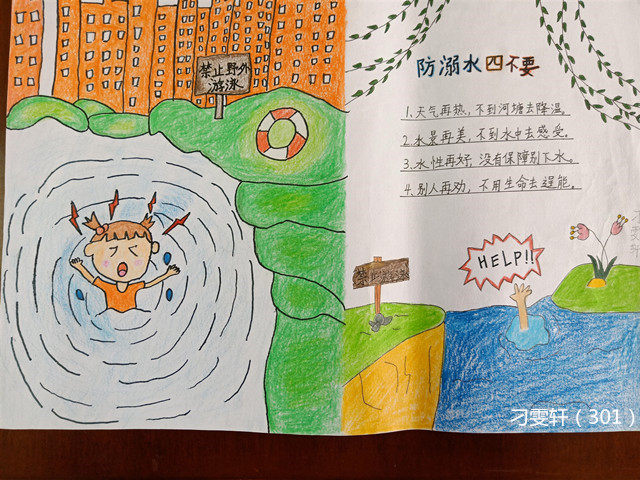 禁止野外
游泳
防溺水四不要
1.天气再热,不到河塘去降温。
2.水景再美,不到水中去感受。
3.水性再好,没有保障别下水。
4.别人再劝,不用生命去逞能。
HELP!!
刁雯轩（301）